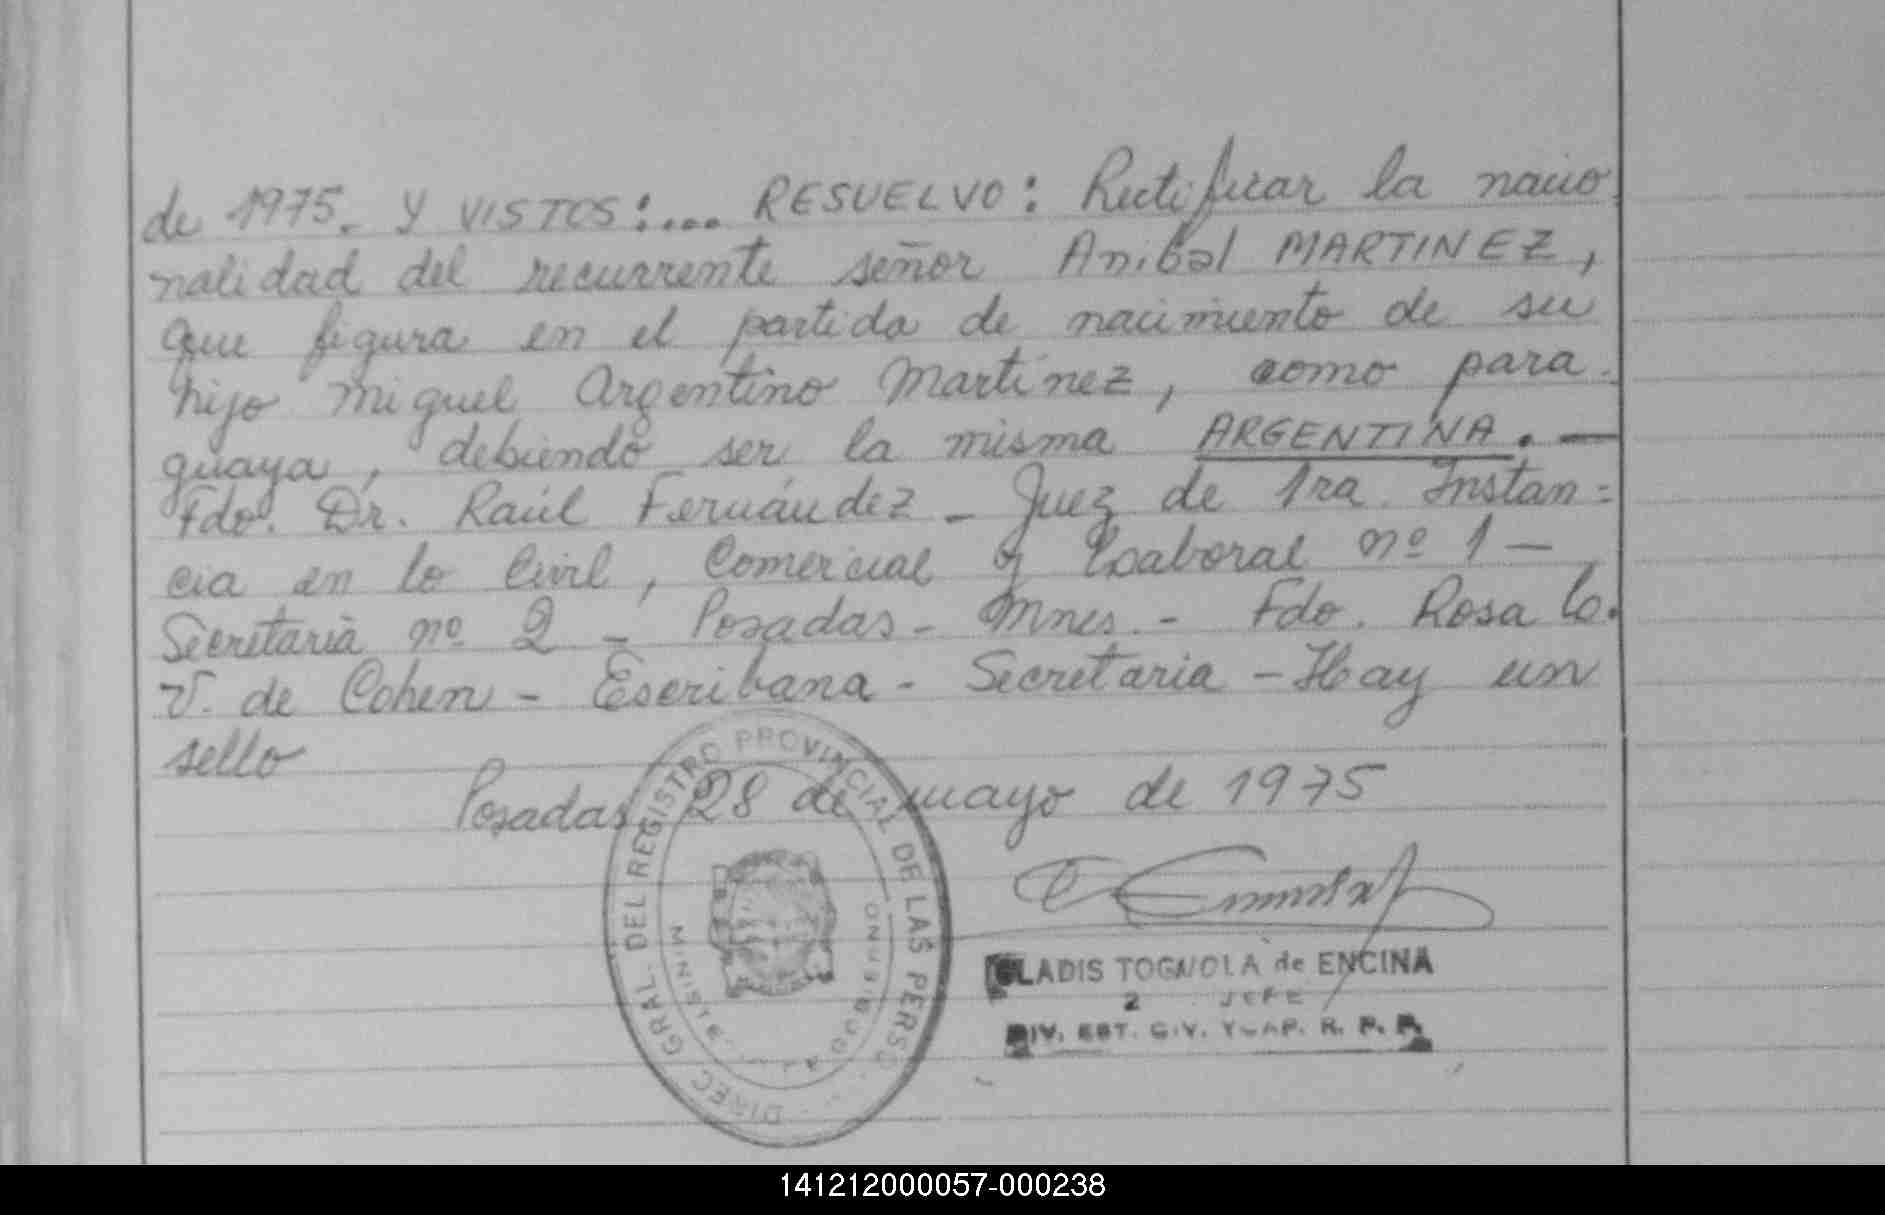 de 1975. Y VISTOS:... RESUELVO: Rectificar la nacio
nalidad del recurrente señor Anibal MARTINEZ,
que figura en el partida de nacimiento de su
hijo Miguel Argentino Martinez, como para-
guaya, debiendo ser la misma ARGENTINA.—
Fdo. Dr. Raúl Fernández - Juez de 1ra Instan=
cia en lo Civil, Comercial y Laboral nº 1 —
Secretaria nº 2 - Posadas - Mnes. - Fdo. Rosa C.
V. de Cohen - Escribana - Secretaria - Hay un
sello
Posadas, 28 de mayo de 1975
DIREC. GRAL. DEL REGISTRO PROVINCIAL DE LAS PERSO
MINISTE
GLADIS TOGNOLA de ENCINA
2 JEFE
DIV. EST. CIV. Y CAP. R. P. P.
141212000057-000238